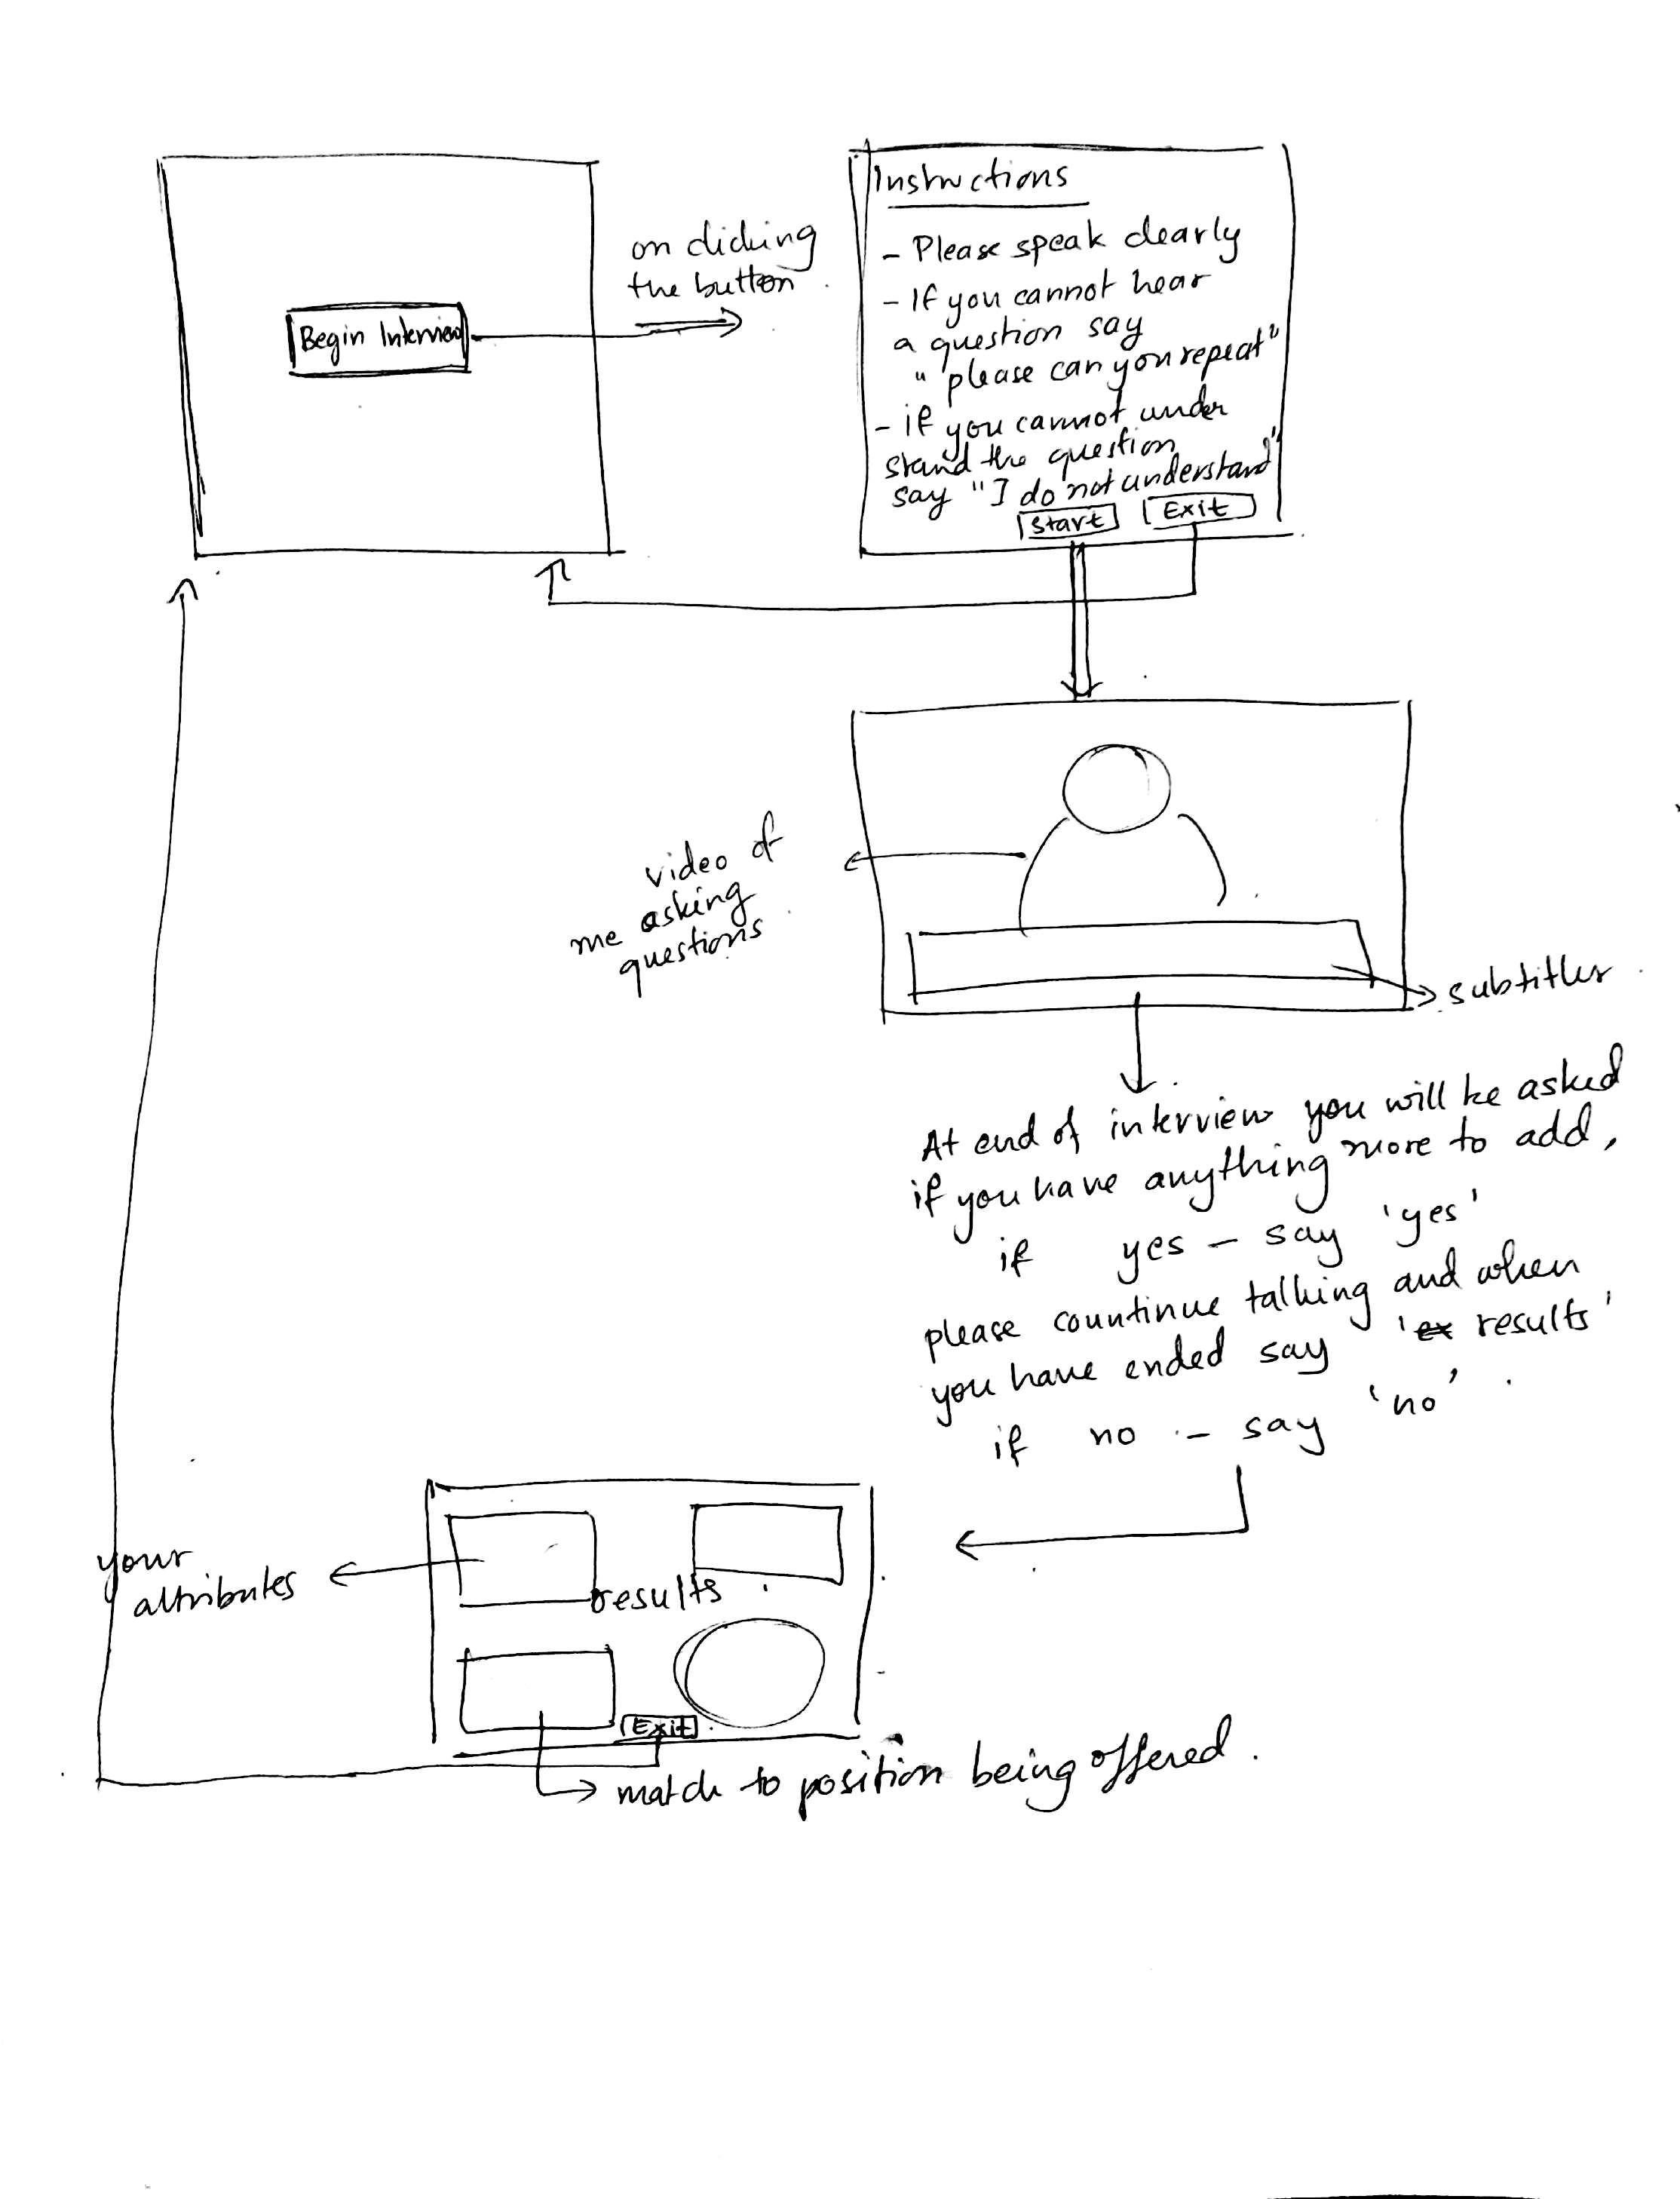 Begin Interview
on clicking
the button
Instructions
- Please speak clearly
- If you cannot hear
a question say
" please can you repeat"
- if you cannot under
stand the question
say "I do not understand"
Start
Exit
video of
me asking
questions
subtitles
At end of interview you will be asked
if you have anything more to add,
if yes - say 'yes'
please countinue talking and when
you have ended say 'ex results'
if no - say 'no'
your
attributes
results
Exit
match to position being offered.